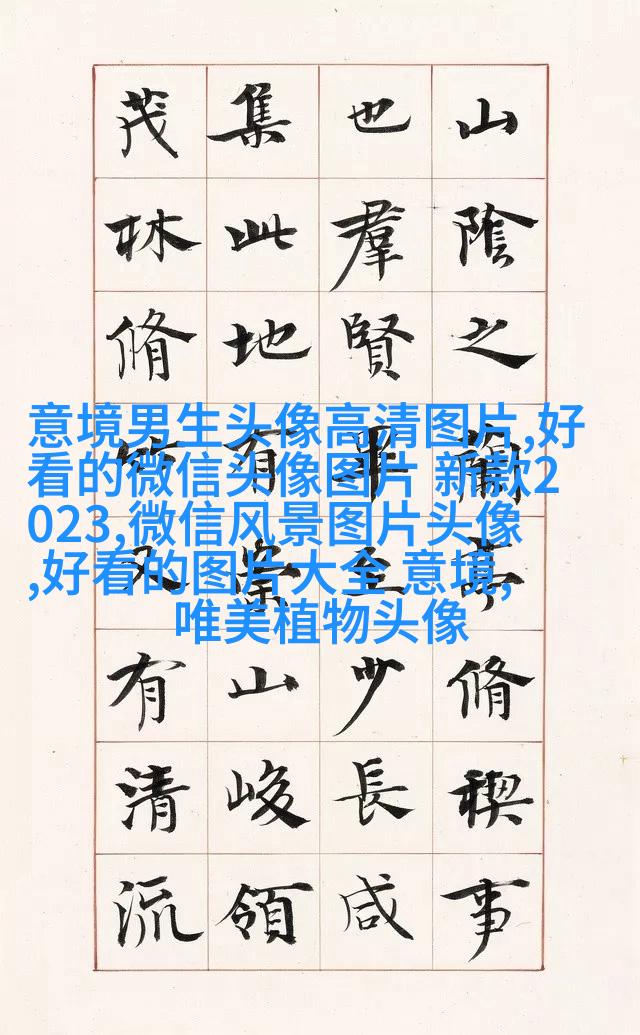 山陰之蘭亭脩稧事
也羣賢畢至少長咸
集此地有崇山峻領
茂林脩竹又有清流
意境男生头像高清图片,好
看的微信头像图片 新款2
023,微信风景图片头像
,好看的图片大全 意境,
唯美植物头像